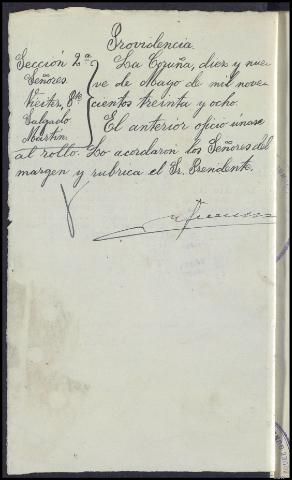 Providencia.
Sección 2ª
Señores.
Vieites, Pte
Salgado
Martín.
La Coruña, diez y nue-
ve de Mayo de mil nove-
cientos treinta y ocho.
El anterior oficio únase
al rollo. Lo acordaron los Señores del
margen y rubrica el Sr. Presidente.